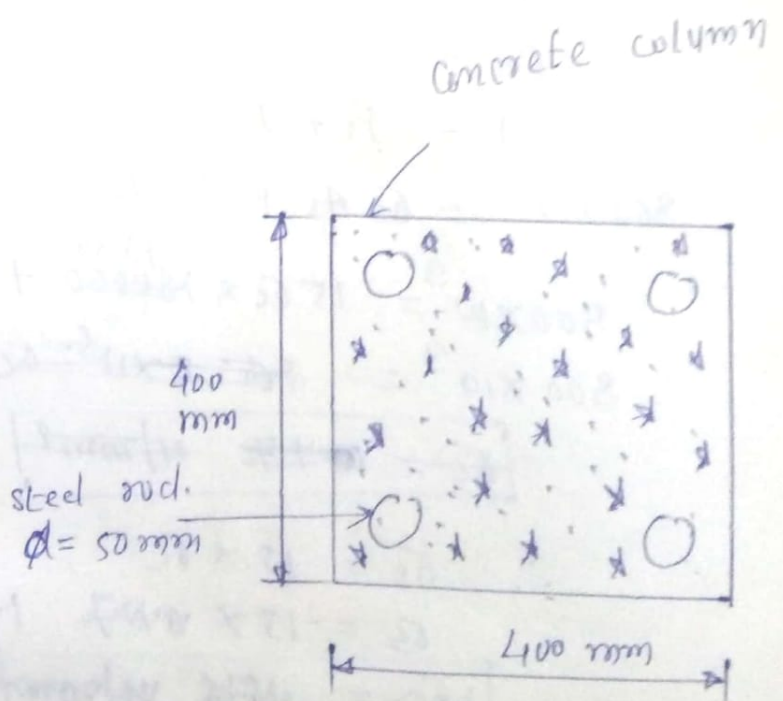 concrete column
400
mm
steel rod.
φ= 50 mm
400 mm